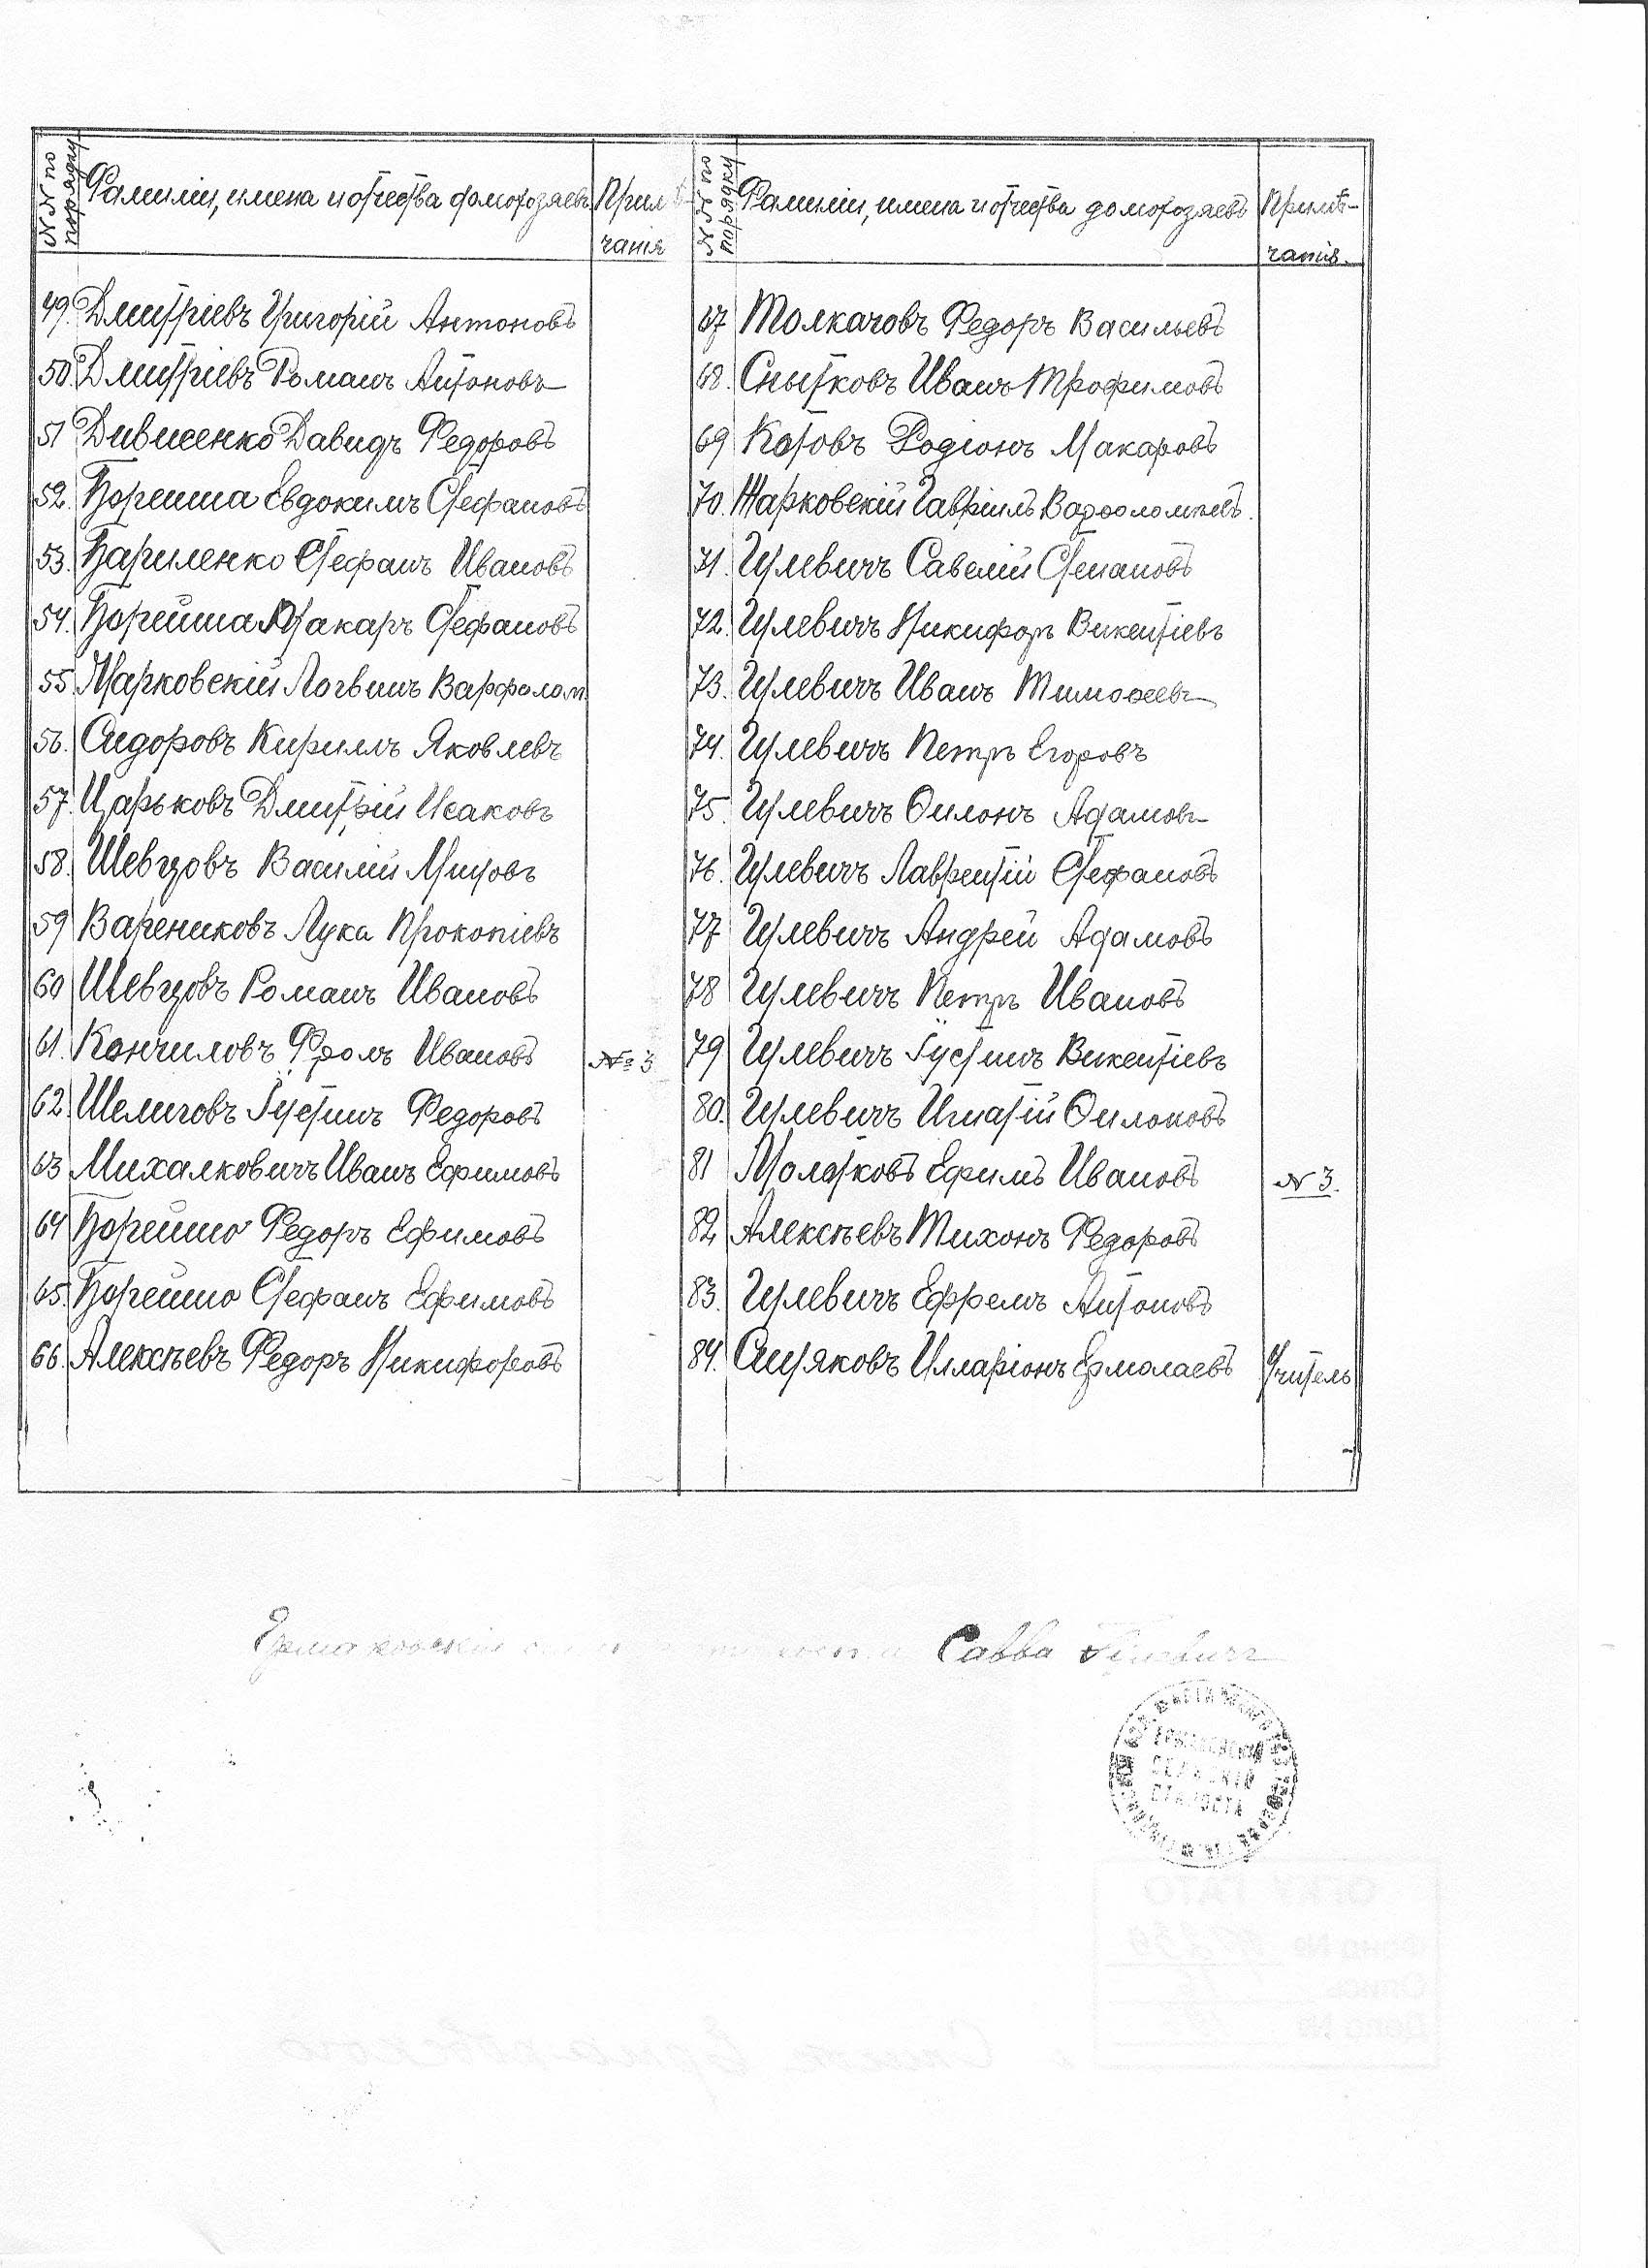 №№ по порядку
Фамиліи, имена и отчества домохозяевъ
Примѣ-
чанія
49. Дмитріевъ Григорій Антоновъ
50. Дмитріевъ Романъ Антоновъ
51 Дивисенко Давидъ Федоровъ
52. Борейша Евдокимъ Стефановъ
53. Бариленко Стефанъ Ивановъ
54. Борейша Макаръ Стефановъ
55. Марковскій Логвинъ Варфолом
56. Сидоровъ Кирилъ Яковлевъ
57. Царьковъ Дмитрій Исаковъ
58. Шевцовъ Василій Титовъ
59 Варениковъ Лука Прокопіевъ
60 Шевцовъ Романъ Ивановъ
61. Кончиловъ Фролъ Ивановъ № 3
62. Шелиговъ Іустинъ Федоровъ
63 Михалковичъ Иванъ Ефимовъ
64 Борейшо Федоръ Ефимовъ
65. Борейшо Стефанъ Ефимовъ
66. Алексѣевъ Федоръ Никифоровъ
№№ по порядку
Фамиліи, имена и отчества домохозяевъ
Примѣ-
чанія.
67 Толкачовъ Федоръ Васильевъ
68. Снытковъ Иванъ Трофимовъ
69 Котовъ Родіонъ Макаровъ
70. Жарковскій Гавріилъ Варѳоломѣевъ.
71. Гулевичъ Савелій Степановъ
72. Гулевичъ Никифоръ Викентіевъ
73. Гулевичъ Иванъ Тимоѳеевъ
74. Гулевичъ Петръ Егоровъ
75. Гулевичъ Ѳилонъ Адамовъ
76. Гулевичъ Лаврентій Стефановъ
77 Гулевичъ Андрей Адамовъ
78 Гулевичъ Петръ Ивановъ
79 Гулевичъ Іустинъ Викентіевъ
80. Гулевичъ Игнатій Ѳилоновъ
81 Молотковъ Ефимъ Ивановъ № 3.
82 Алексѣевъ Тихонъ Федоровъ
83. Гулевичъ Ефремъ Антоновъ
84. Ситяковъ Илларіонъ Ермолаевъ Учитель
Ермаковскій Савва Гулевичъ
ЕРМАКОВСКІЙ
СЕЛЬСКІЙ
СТАРОСТА